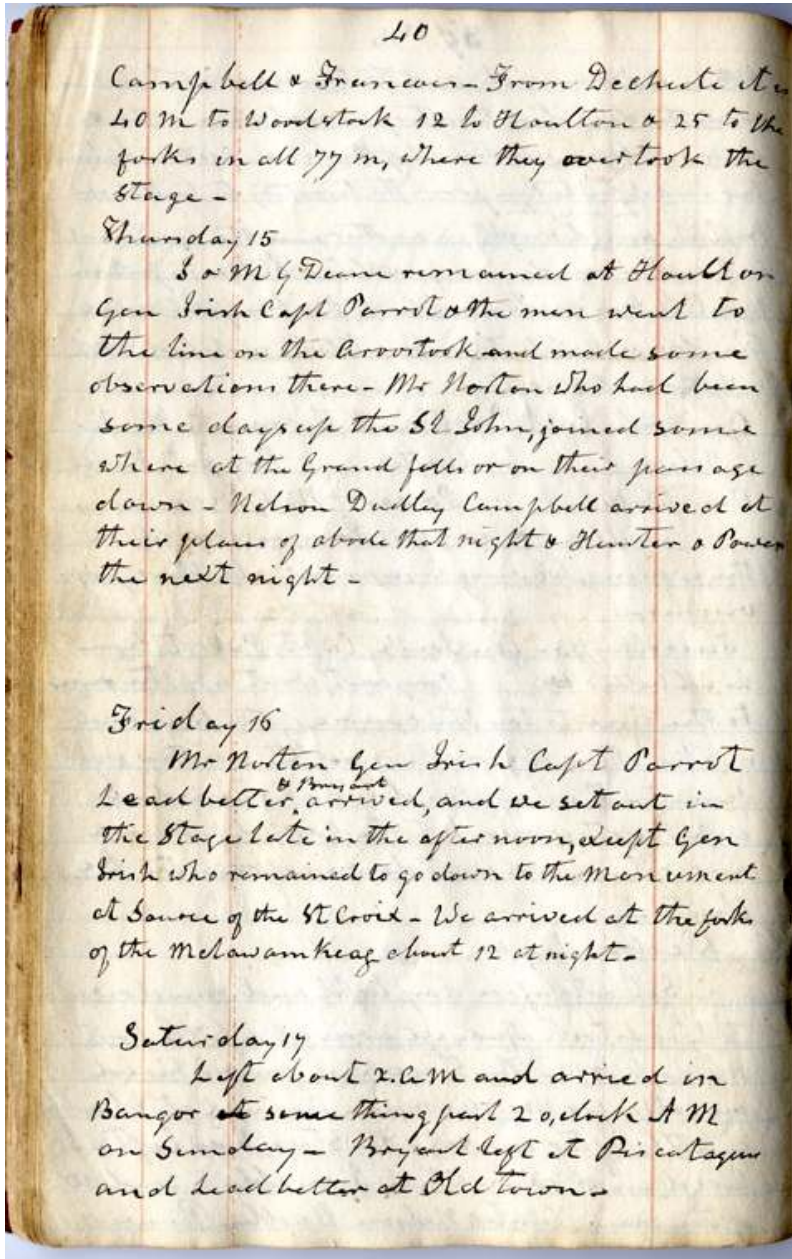 40
Campbell & Francois - From Dechute it is
40 m to Woodstock 12 to Houlton & 25 to the
forks in all 77 m, where they overtook the
Stage -
Thursday 15
I & M G Deane remained at Houlton
Gen Irish Capt Parrot & the men went to
the line on the Aroostook and made some
observations there - Mr Norton who had been
some days up the St John, joined some
where at the Grand falls or on their passage
down - Nelson Dudley Campbell arrived at
their places of abode that night & Hunter & Power
the next night -
Friday 16
Mr Norton Gen Irish Capt Parrot
& Bryant
Leadbetter, arrived, and we set out in
the Stage late in the afternoon, except Gen
Irish who remained to go down to the Monument
at Source of the St Croix - We arrived at the forks
of the Metawamkeag about 12 at night -
Saturday 17
Left about A M and arried in
Bangor at something past 2 o,clock A M
on Sunday - Bryant left at Piscataquis
and Leadbetter at Old town -